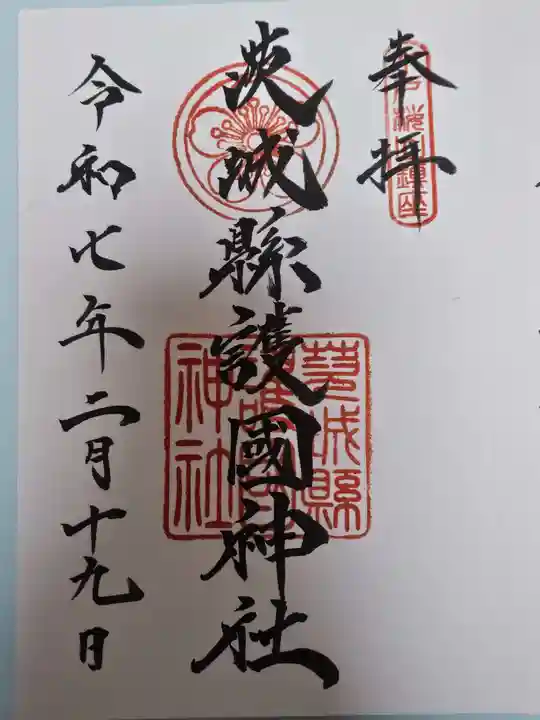 奉拝
茨城縣護國神社
茨城縣
護國
神社
令和七年二月十九日